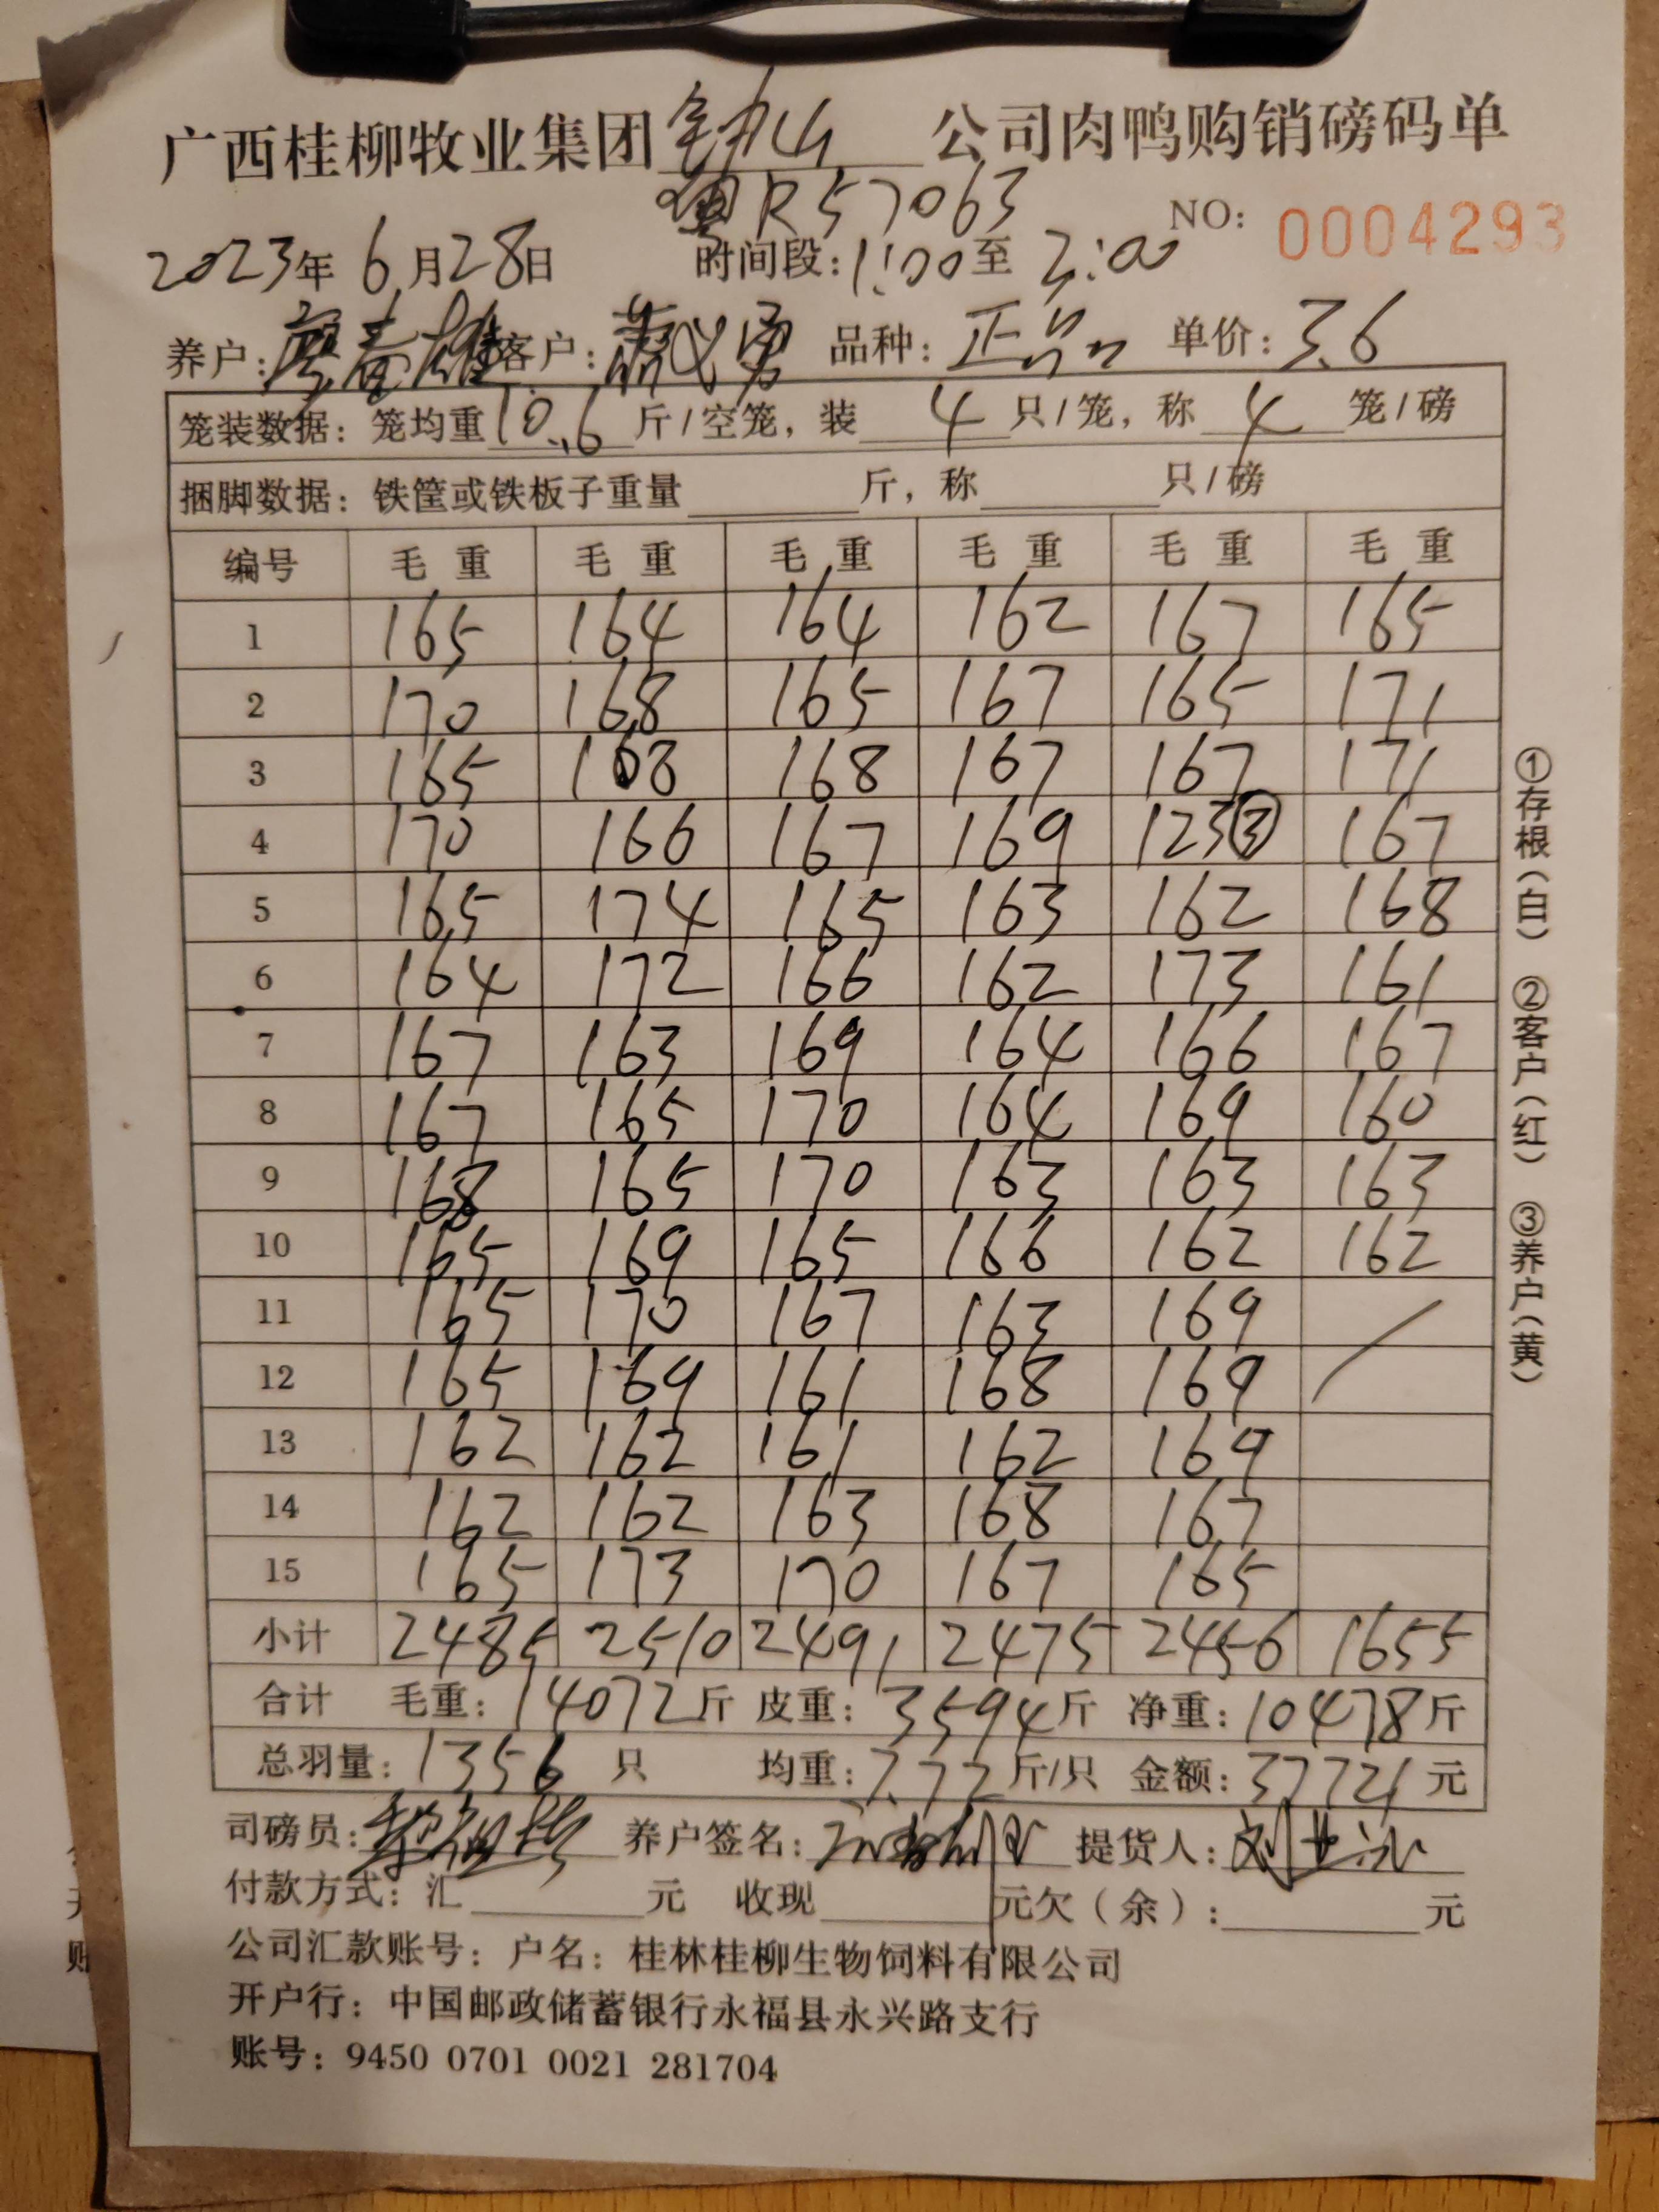 广西桂柳牧业集团 公司肉鸭购销磅码单
R57063
NO: 0004293
2023年 6月28日 时间段:1:00至 2:00
养户: 客户: 品种: 正品 单价: 3.6
笼装数据: 笼均重10.6斤/空笼, 装 4 只/笼, 称 4 笼/磅
捆脚数据: 铁筐或铁板子重量 斤, 称 只/磅
编号 毛重 毛重 毛重 毛重 毛重 毛重
1 165 164 164 162 167 165
2 170 168 165 167 165 171
3 165 168 168 167 167 171
4 170 166 167 169 123③ 167
5 165 174 165 163 162 168
6 164 172 166 162 173 161
7 167 163 169 164 166 167
8 167 165 170 164 169 160
9 168 165 170 163 163 163
10 165 169 165 166 162 162
11 165 170 167 163 169
12 165 169 161 168 169
13 162 162 161 162 169
14 162 162 163 168 167
15 165 173 170 167 165
小计 2485 2510 2491 2475 2456 1655
合计 毛重: 14072斤 皮重: 3594斤 净重: 10478斤
总羽量: 1356 只 均重: 7.72斤/只 金额: 37721元
司磅员: 养户签名: 提货人:
付款方式: 汇 元 收现 元欠(余): 元
公司汇款账号: 户名: 桂林桂柳生物饲料有限公司
开户行: 中国邮政储蓄银行永福县永兴路支行
账号: 9450 0701 0021 281704
①存根(白) ②客户(红) ③养户(黄)